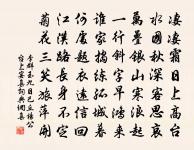 淒淒霜日上高臺
水國秋深客思哀
萬疊銀山寒浪起
一行斜字早鴻來
誰家搗練孤城暮
何處題衣遠信回
江漢路長身不定
菊花三笑旅懷開
李群玉九日巴丘楊公
台上宴集詞典網集